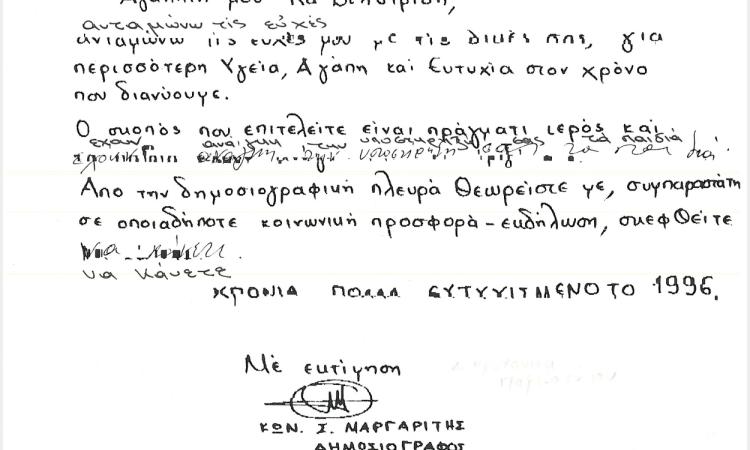 Αγαπητή μου Κα
ανταμώνω τις ευχές
ανταμώνω τις ευχές μου με τις δικές σας, για
περισσότερη Υγεία, Αγάπη και Ευτυχία στον χρόνο
που διανύουμε.
Ο σκοπός που επιτελείτε είναι πράγματι ιερός και
έχουν ανάγκη την υποστήριξή σας τα παιδιά
Απο την δημοσιογραφική πλευρά Θεωρείστε με, συμπαραστάτη
σε οποιαδήποτε κοινωνική προσφορά - εκδήλωση, σκεφθείτε
να κάνετε.
να κάνετε
ΧΡΟΝΙΑ ΠΟΛΛΑ ΕΥΤΥΧΙΣΜΕΝΟ ΤΟ 1996.
Μέ εκτίμηση
ΚΩΝ. Σ. ΜΑΡΓΑΡΙΤΗΣ
ΔΗΜΟΣΙΟΓΡΑΦΟΣ